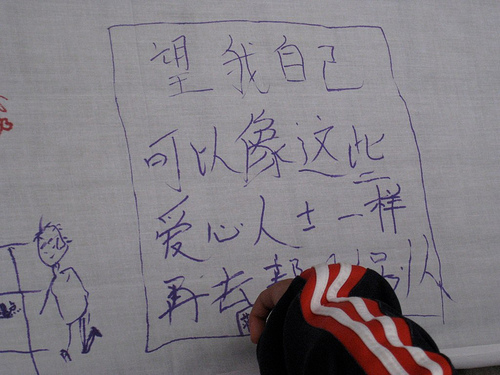 望我自己
可以像这些
爱心人士一样
再去帮 别人